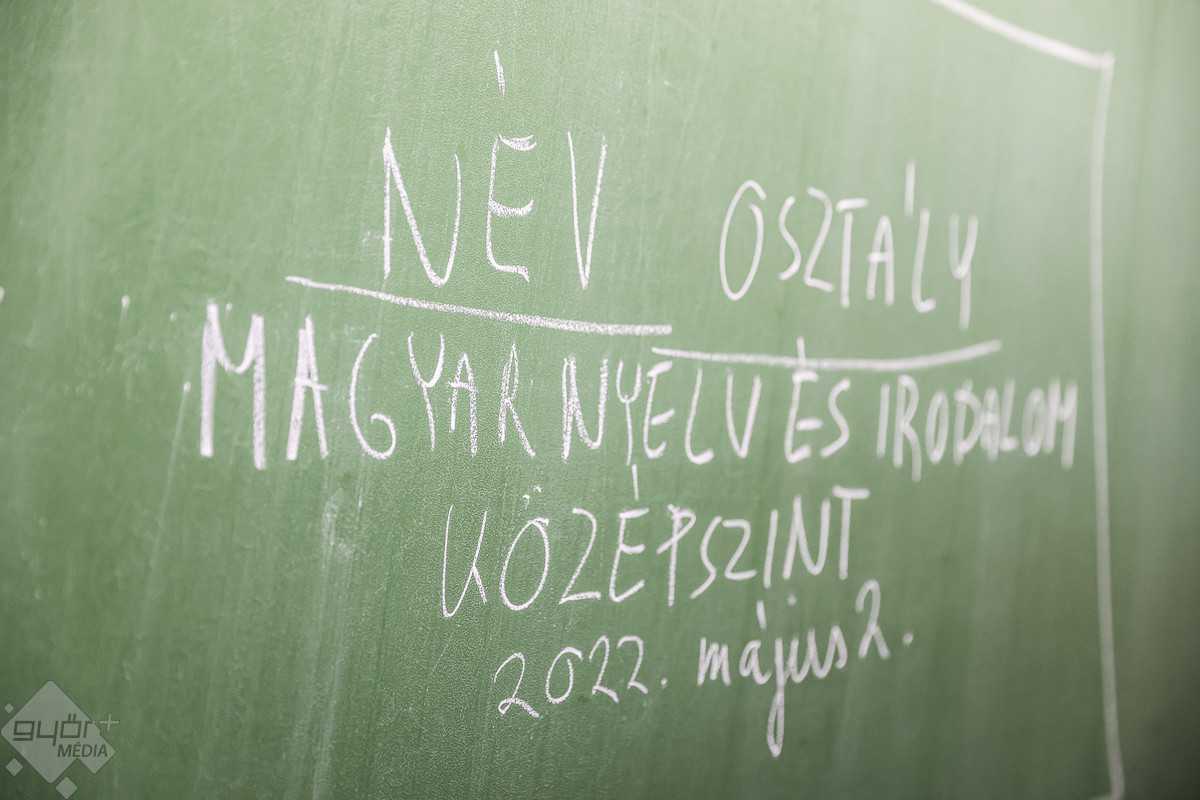 NÉV OSZTÁLY
MAGYAR NYELV ÉS IRODALOM
KÖZÉPSZINT
2022. május 2.
győr+
MÉDIA